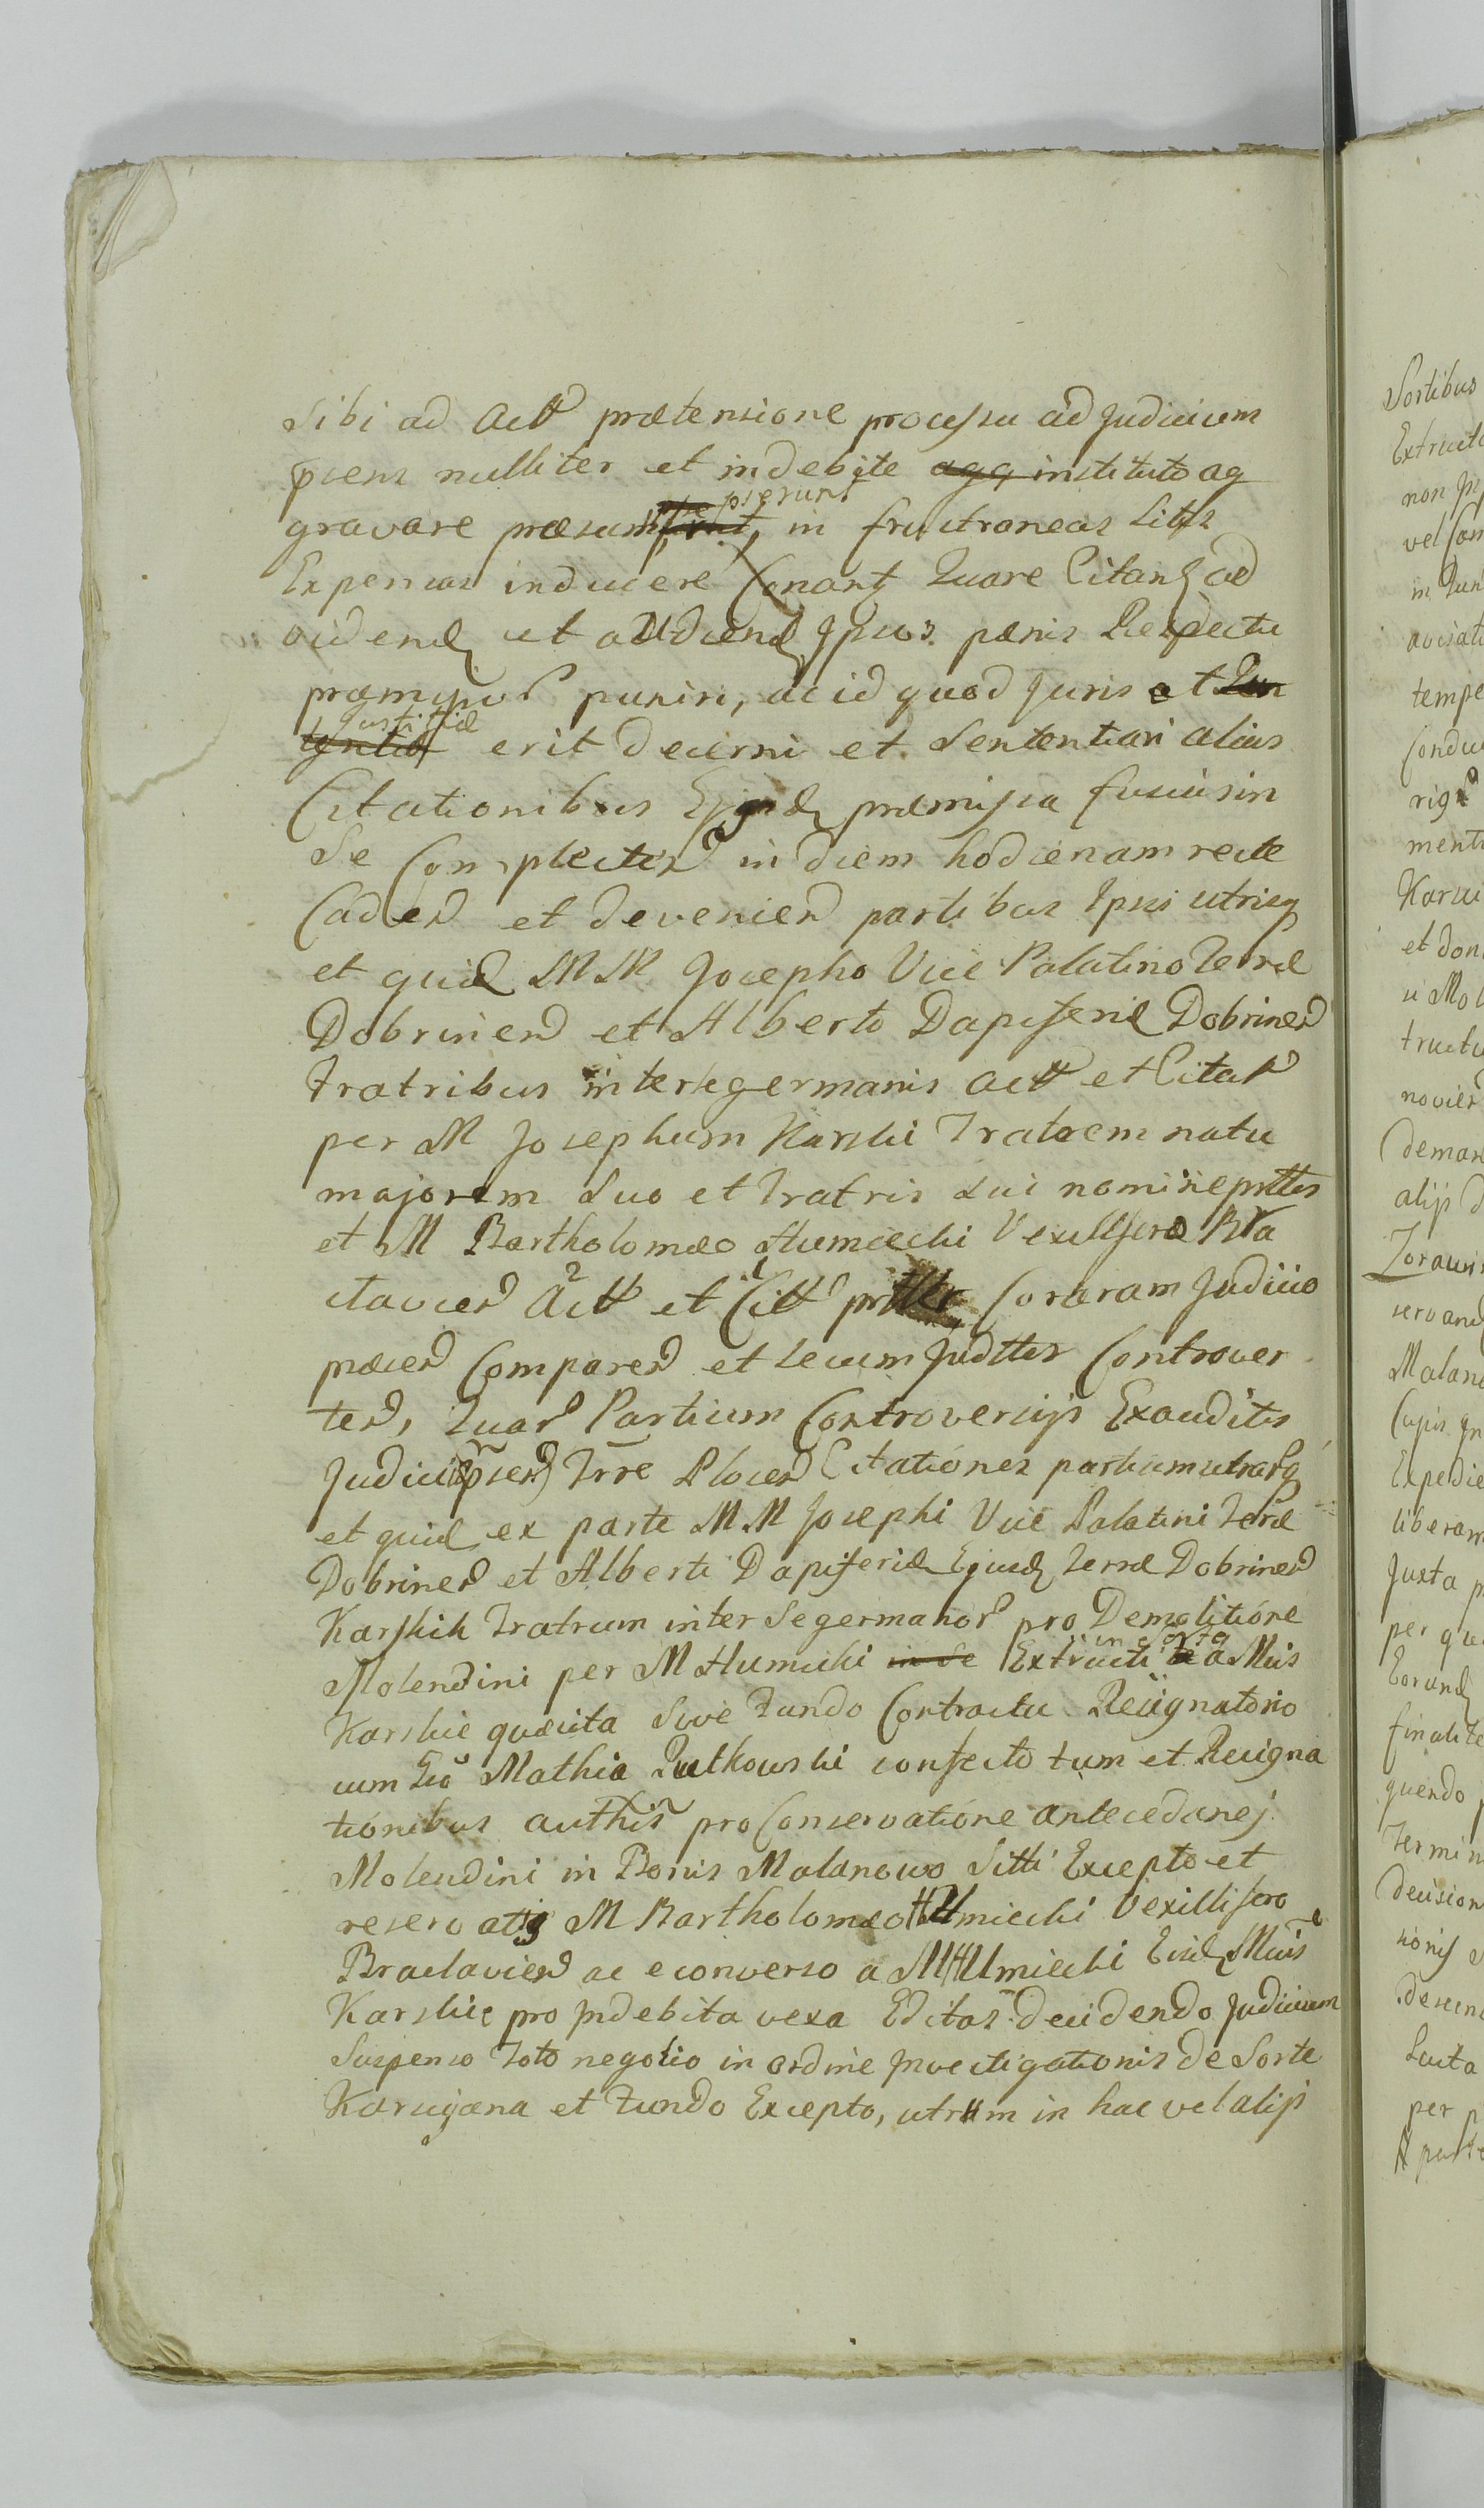 Sibi ad Actt prætensione processu ad Judicium
psens nulliter et indebite agg instituto ag
gravare præsumpserunt, in frustraneas Litis
Expensas inducere Conantq Quare Citandq ad
videndq et audiendq Ipsos pænis Respectu
præmissor puniri, ac id quod Juris et
Justitiæ erit decerni et Sententiari alias
Citationibus Ejusdq præmissa fusius in
Se Complecten in diem hodiernam recte
Caden et devenien partibus Ipsis utrisq
et quidq MM Josepho Vice Palatino Terræ
Dobrinen et Alberto Dapiferidæ Dobrinen
Fratribus inter se germanis Actt et Citat
per M Josephum Karski Fratrem natu
majorem Suo et Fratris Sui nomine prttes
et M Bartholomæo Humiecki Vexillifero Bra
clavien Actt et Citt prtter Coram Judicio
præsen Comparen et Secum Judtter Controver
ten, Quar Partium Controversijs Exauditis
Judicium psens Trre Plocen Citationes partium utrarq
et quidq ex parte MM Josephi Vice Palatini Terræ
Dobrinen et Alberti Dapiferidæ Ejusdq Terræ Dobrinen
Karskich Fratrum inter Se germanor pro Demolitione
Molendini per M Humiecki in se Extructi in Sorte a Mcis
Karskie quæsita Sive Fundo Contractu Resignatorio
cum Gso Mathia Rutkowski confecto tum et Resigna
tionibus authis pro Conservatione antecedanej
Molendini in Bonis Malanowo Sitti Excepto et
reservatis M Bartholomæo Humiecki Vexillifero
Braclavien ac e converso a M Humiecki Eisdq Mcis
Karskie pro Indebita vexa Editas decidendo Judicium
Suspenso Toto negotio in ordine Investigationis de Sorte
Karscijana et Fundo Excepto, utrum in hac vel alijs
Sortibus
non
tempe
menti
et don
Maland
liberam
Juxta
per
finalite
quendo
Termin
decision